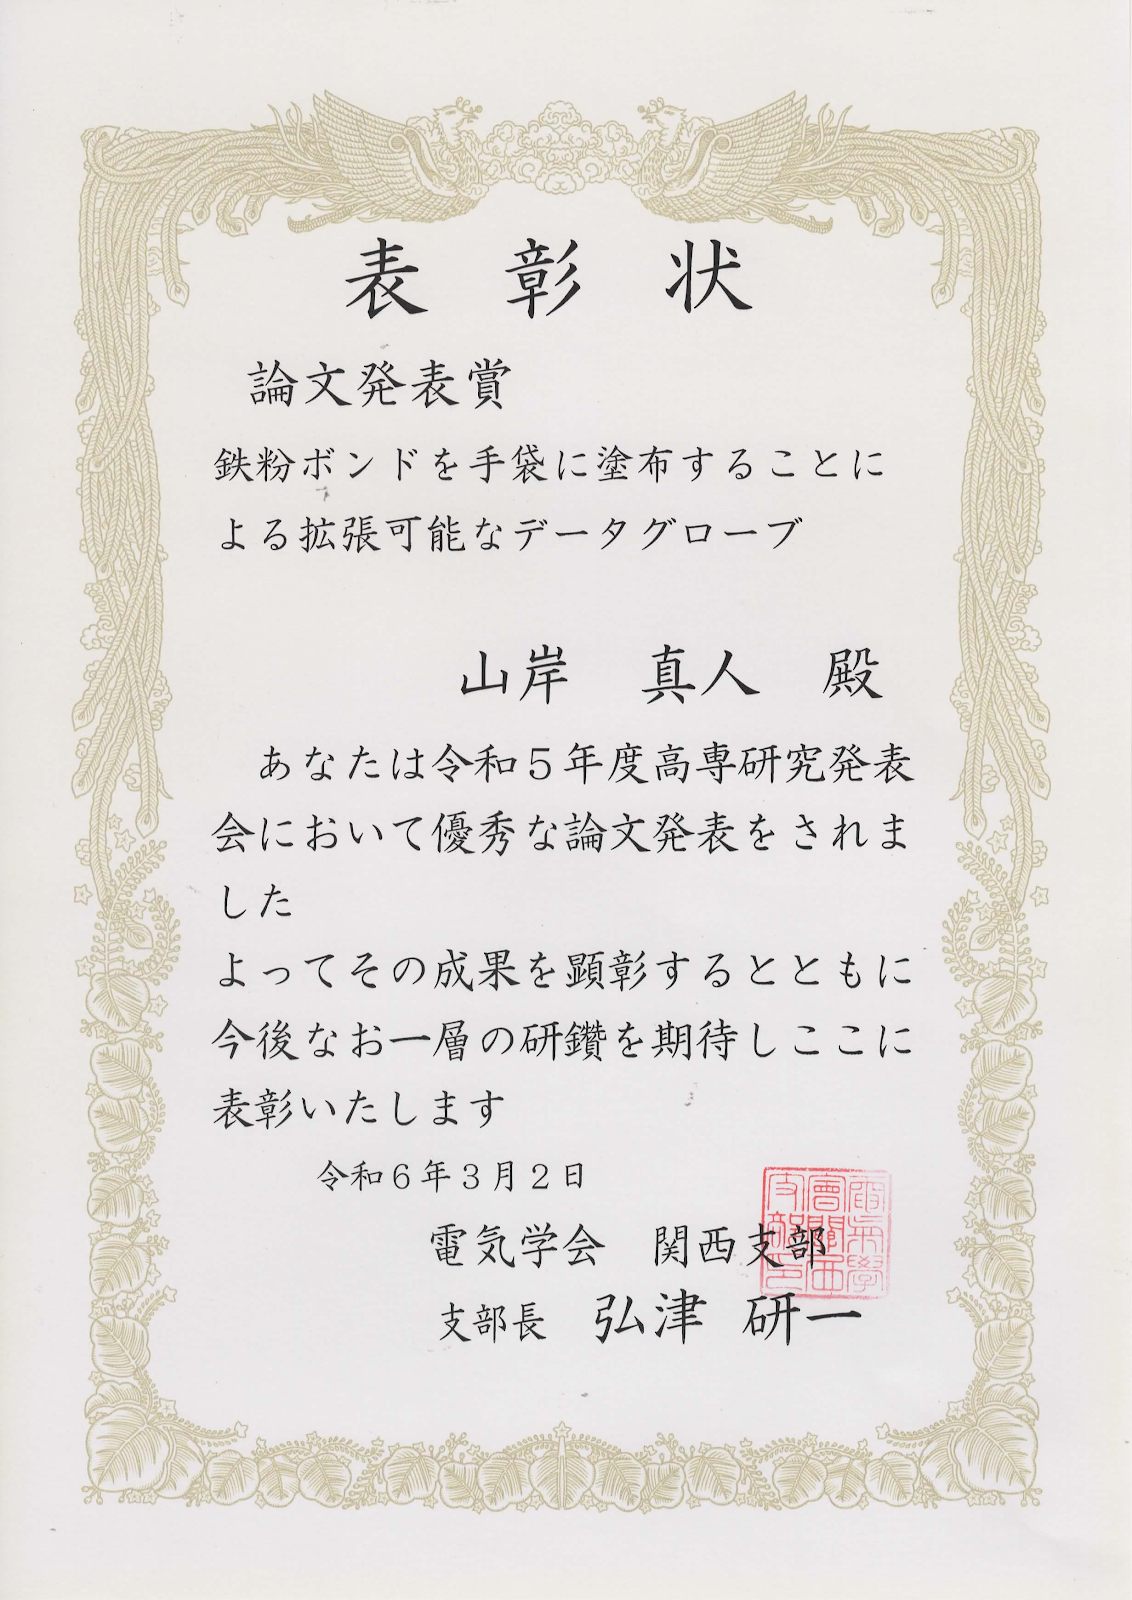 表彰状
論文発表賞
鉄粉ボンドを手袋に塗布することに
よる拡張可能なデータグローブ
山岸　真人　殿
あなたは令和５年度高専研究発表
会において優秀な論文発表をされま
した
よってその成果を顕彰するとともに
今後なお一層の研鑽を期待しここに
表彰いたします
令和６年３月２日
電気学会　関西支部
支部長　弘津　研一
電氣學會關西支部印